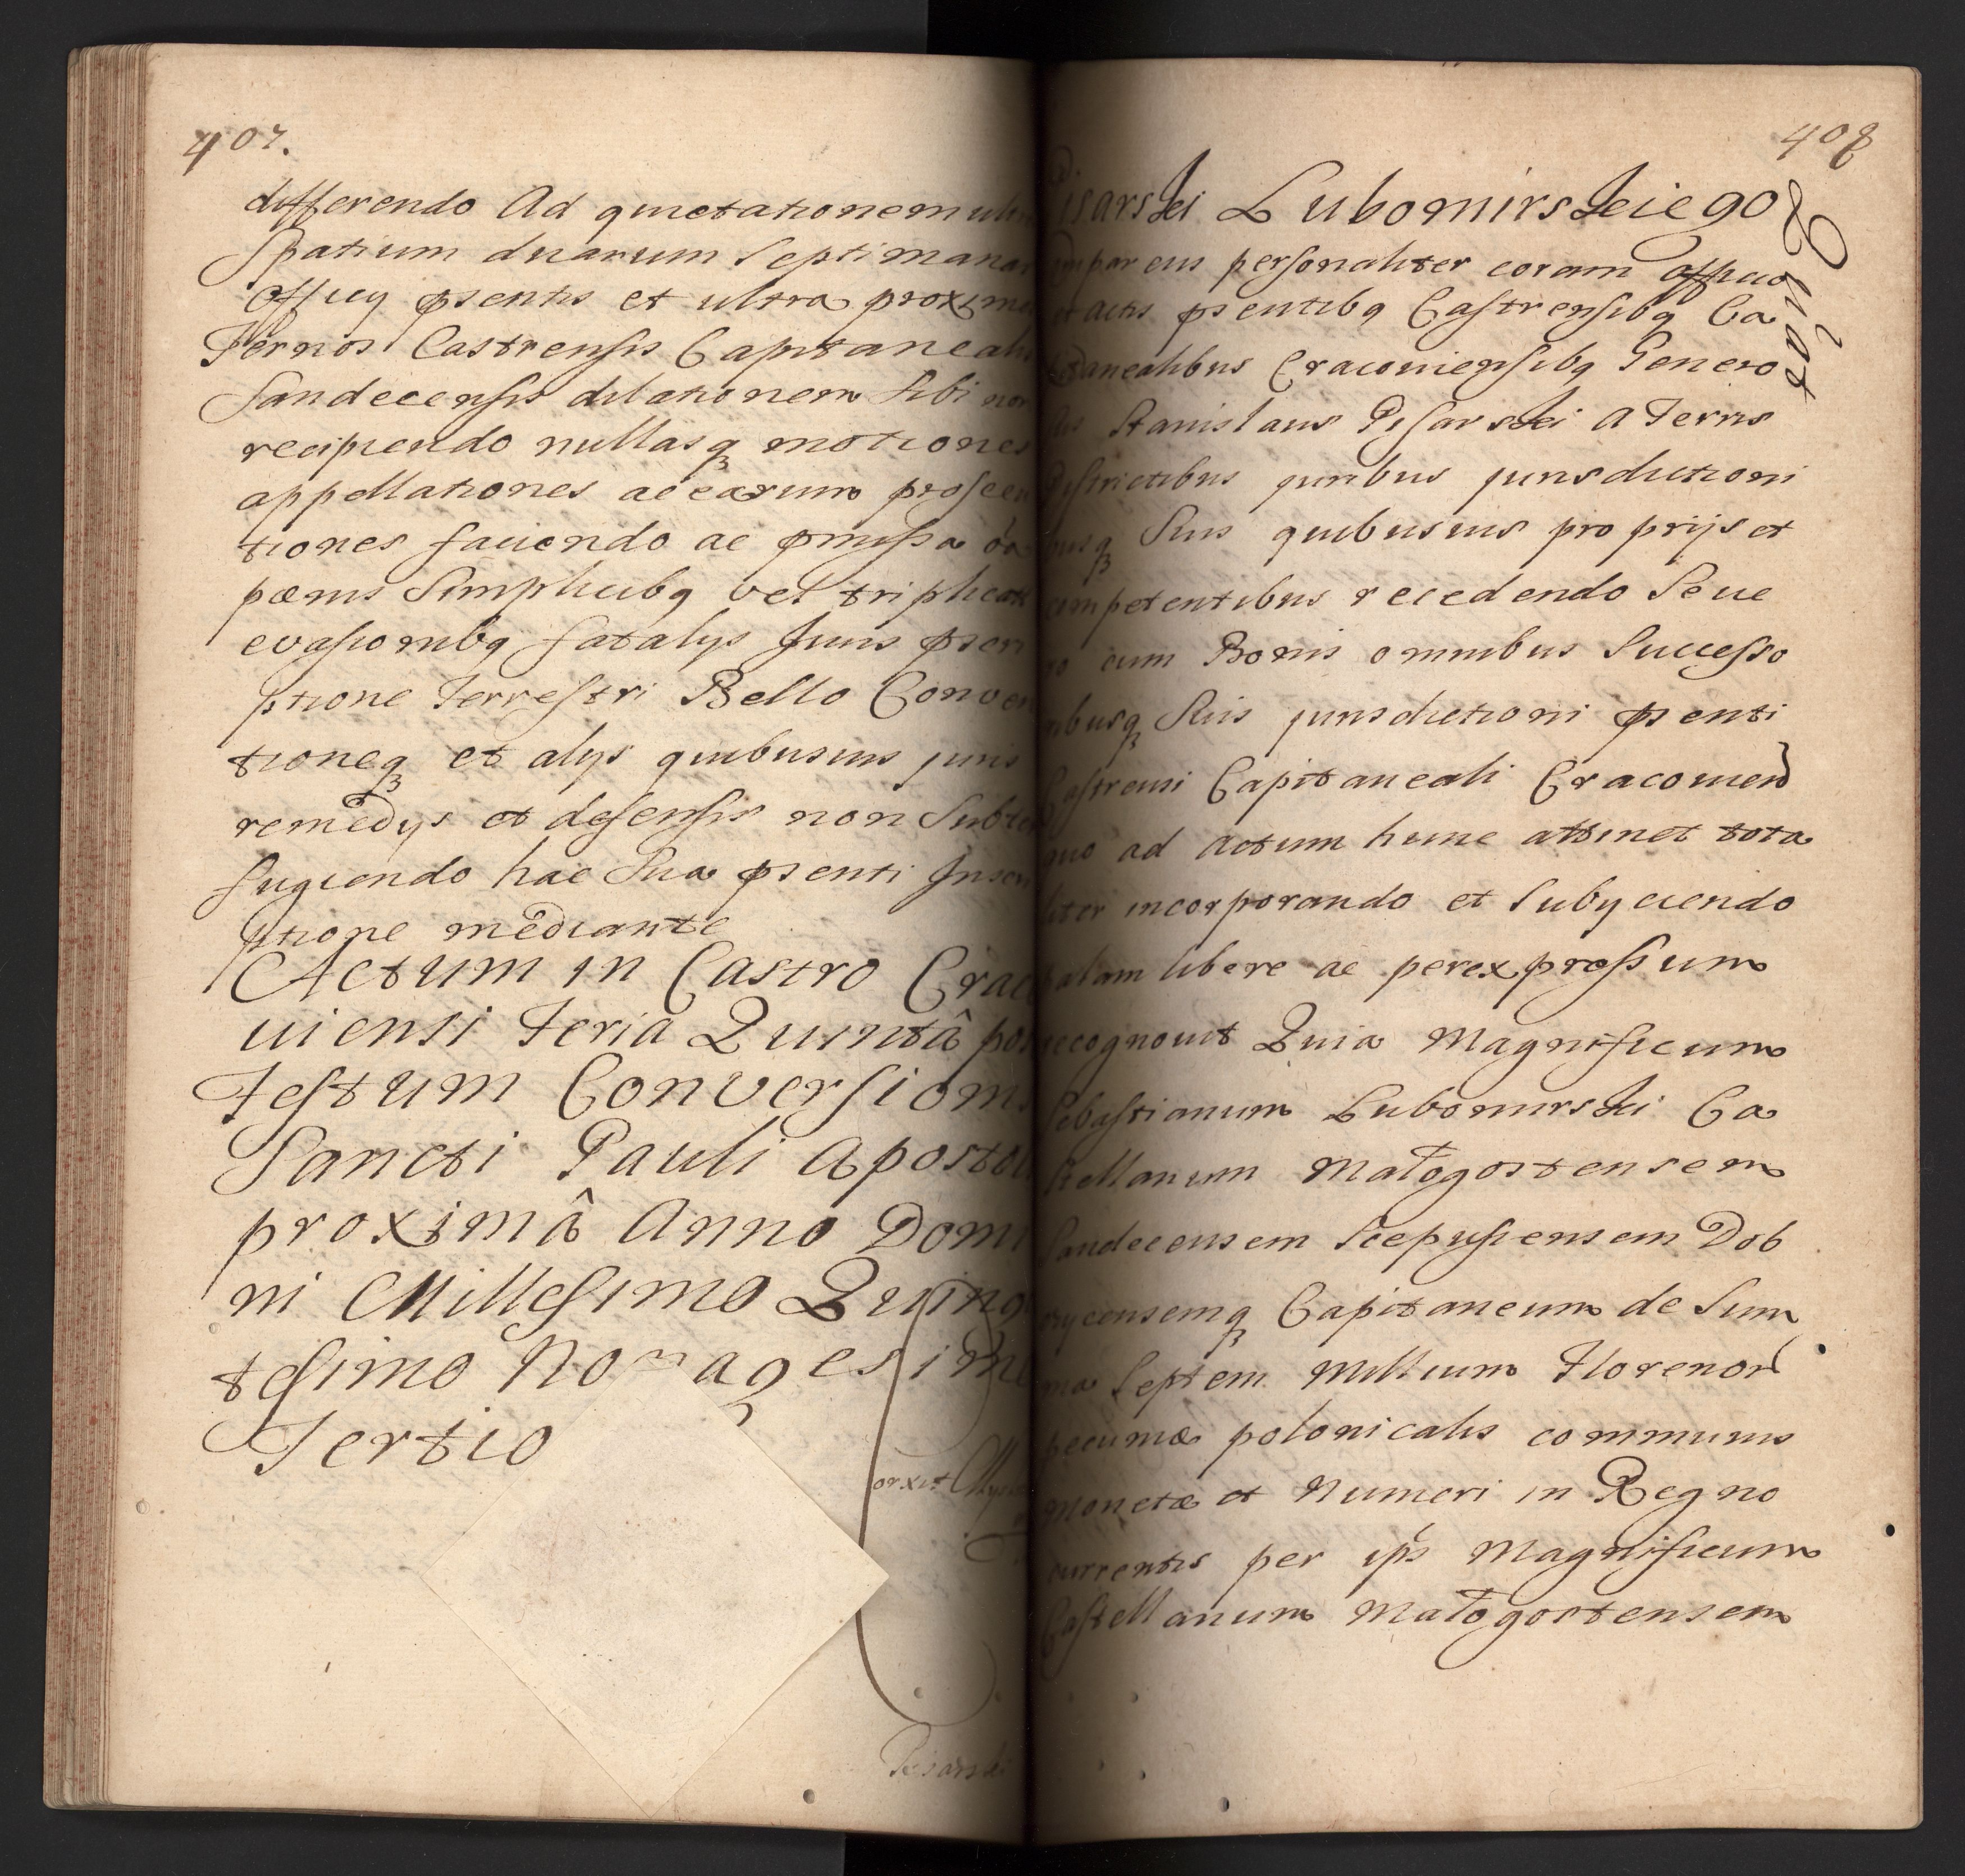 407.
differendo Ad quietationem
Spatium duarum Septimana
Officij psentis et ultra proxim
Ternos Castrensis Capitaneal
Sandecensis dilationem Sibi non
recipiendo nullasq motiones
appellationes ac earum prosecu
tiones faciendo ac pmissa
pœnis Simplicibq vel triplicat
evasionibq fatalys Juris pscri
ptione Terrestri Bello Conven
tioneq et alys quibusuis juris
remedys et defensis non Subter
fugiendo hac Sua psenti Inscri
ptione mediante
Actum in Castro Craco
uiensi Feria Quintâ pos
Festum Conversionis
Sancti Pauli Aposto
proximâ Anno Domi
ni Millesimo Quing
tesimo Nonagesimo
Tertio
orxit
Pisarski
408
Pisarski Lubomirskiego
Quitat
Comparens personaliter coram officio
et actis psentibq Castrensibq Ca
pitanealibus Cracouiensibq Genero
sus Stanislaus Pisarski A Terris
Districtibus juribus jurisdictioni
busq Suis quibusuis proprijs et
competentibus recedendo Seue
ro cum Bonis omnibus Successo
ribusq Suis jurisdictioni psenti
Castrensi Capitaneali Cracouien
quo ad Actum hunc attinet tota
liter incorporando et Subyciendo
palam libere ac per expressum
recognouit Quia Magnificum
Sebastianum Lubomirski Ca
stellanum Małogostensem
Sandecensem Scepusiensem Dob
czycensemq Capitaneum de Sum
ma Septem Millium Florenor
pecuniæ polonicalis communis
Monetæ et Numeri in Regno
currentis per ips Magnificum
Castellanum Małogostensem